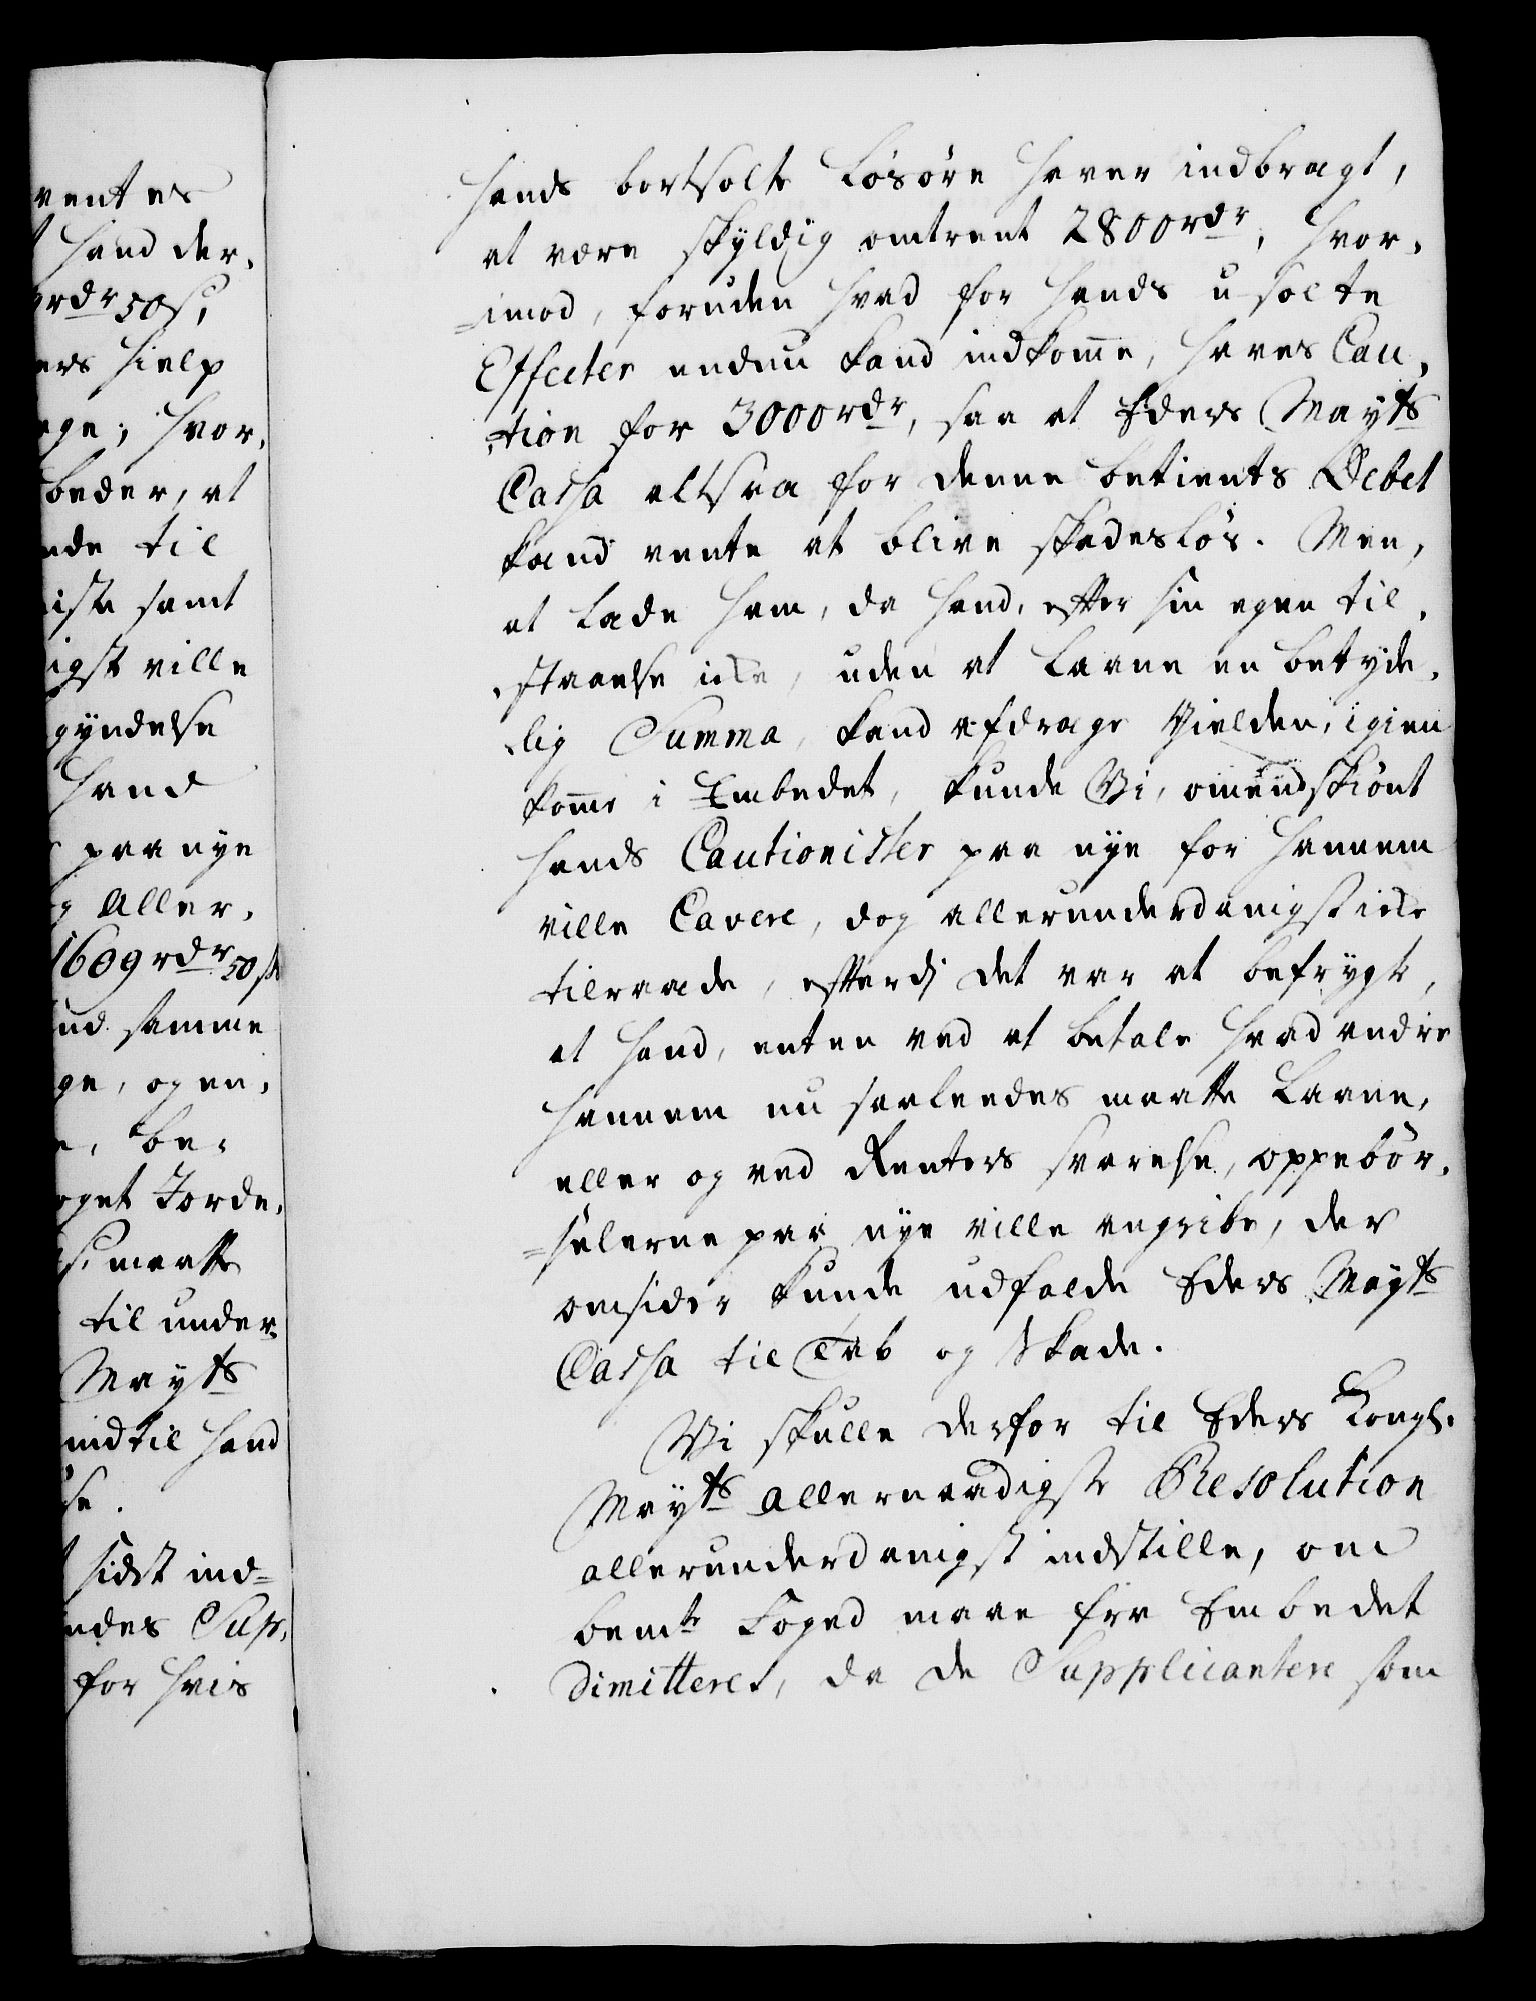 ventes
hand der,
rdr 50 s,
ers hielp
ge; hvor,
beder, at
nde til
iste samt
igst ville
gyndelse
hand
paa nye
g Aller,
1609 rdr 50 s
nd samme
ge, og en,
e, be,
oget Jorde,
s. maatte
til under,
Mayts
indtil hand
se.
sidst ind=
ndes Sup,
for hvis
hands bortsolte Løsøre haver indbragt,
at være skyldig omtrent 2800 rdr, hvor,
=imod, foruden hvad for hands u-solte
Effecter endnu kand indkomme, haves Cau,
,tion for 3000 rdr, saa at Eders Mayts
Cassa altsaa for denne betients Debet
kand vente at blive skadesløs. Men,
at lade ham, da hand, efter sin egen til,
,staaelse icke, uden at laane en betyde,
,lig Summa, kand afdrage Gielden, igien
komme i Embedet, kunde Vi, omendskiønt
hands Cautionister paa nye for hannem
ville Cavere, dog allerunderdanigst icke
tilraade, efterdj det var at befrygte,
at hand, enten ved at betale hvad andre
hannem nu saaleedes maatte Laane,
eller og ved Renters svarelse, oppebør,
=selerne paa nye ville angribe, der
omsider kunde udfalde Eders Mayts
Cassa til Tab og Skade.
Vi skulle derfor til Eders Kongl.
Mayts allernaadigste Resolution
allerunderdanigst indstille, om
bemte Foged maae fra Embedet
dimitteres, da de Supplicantere som